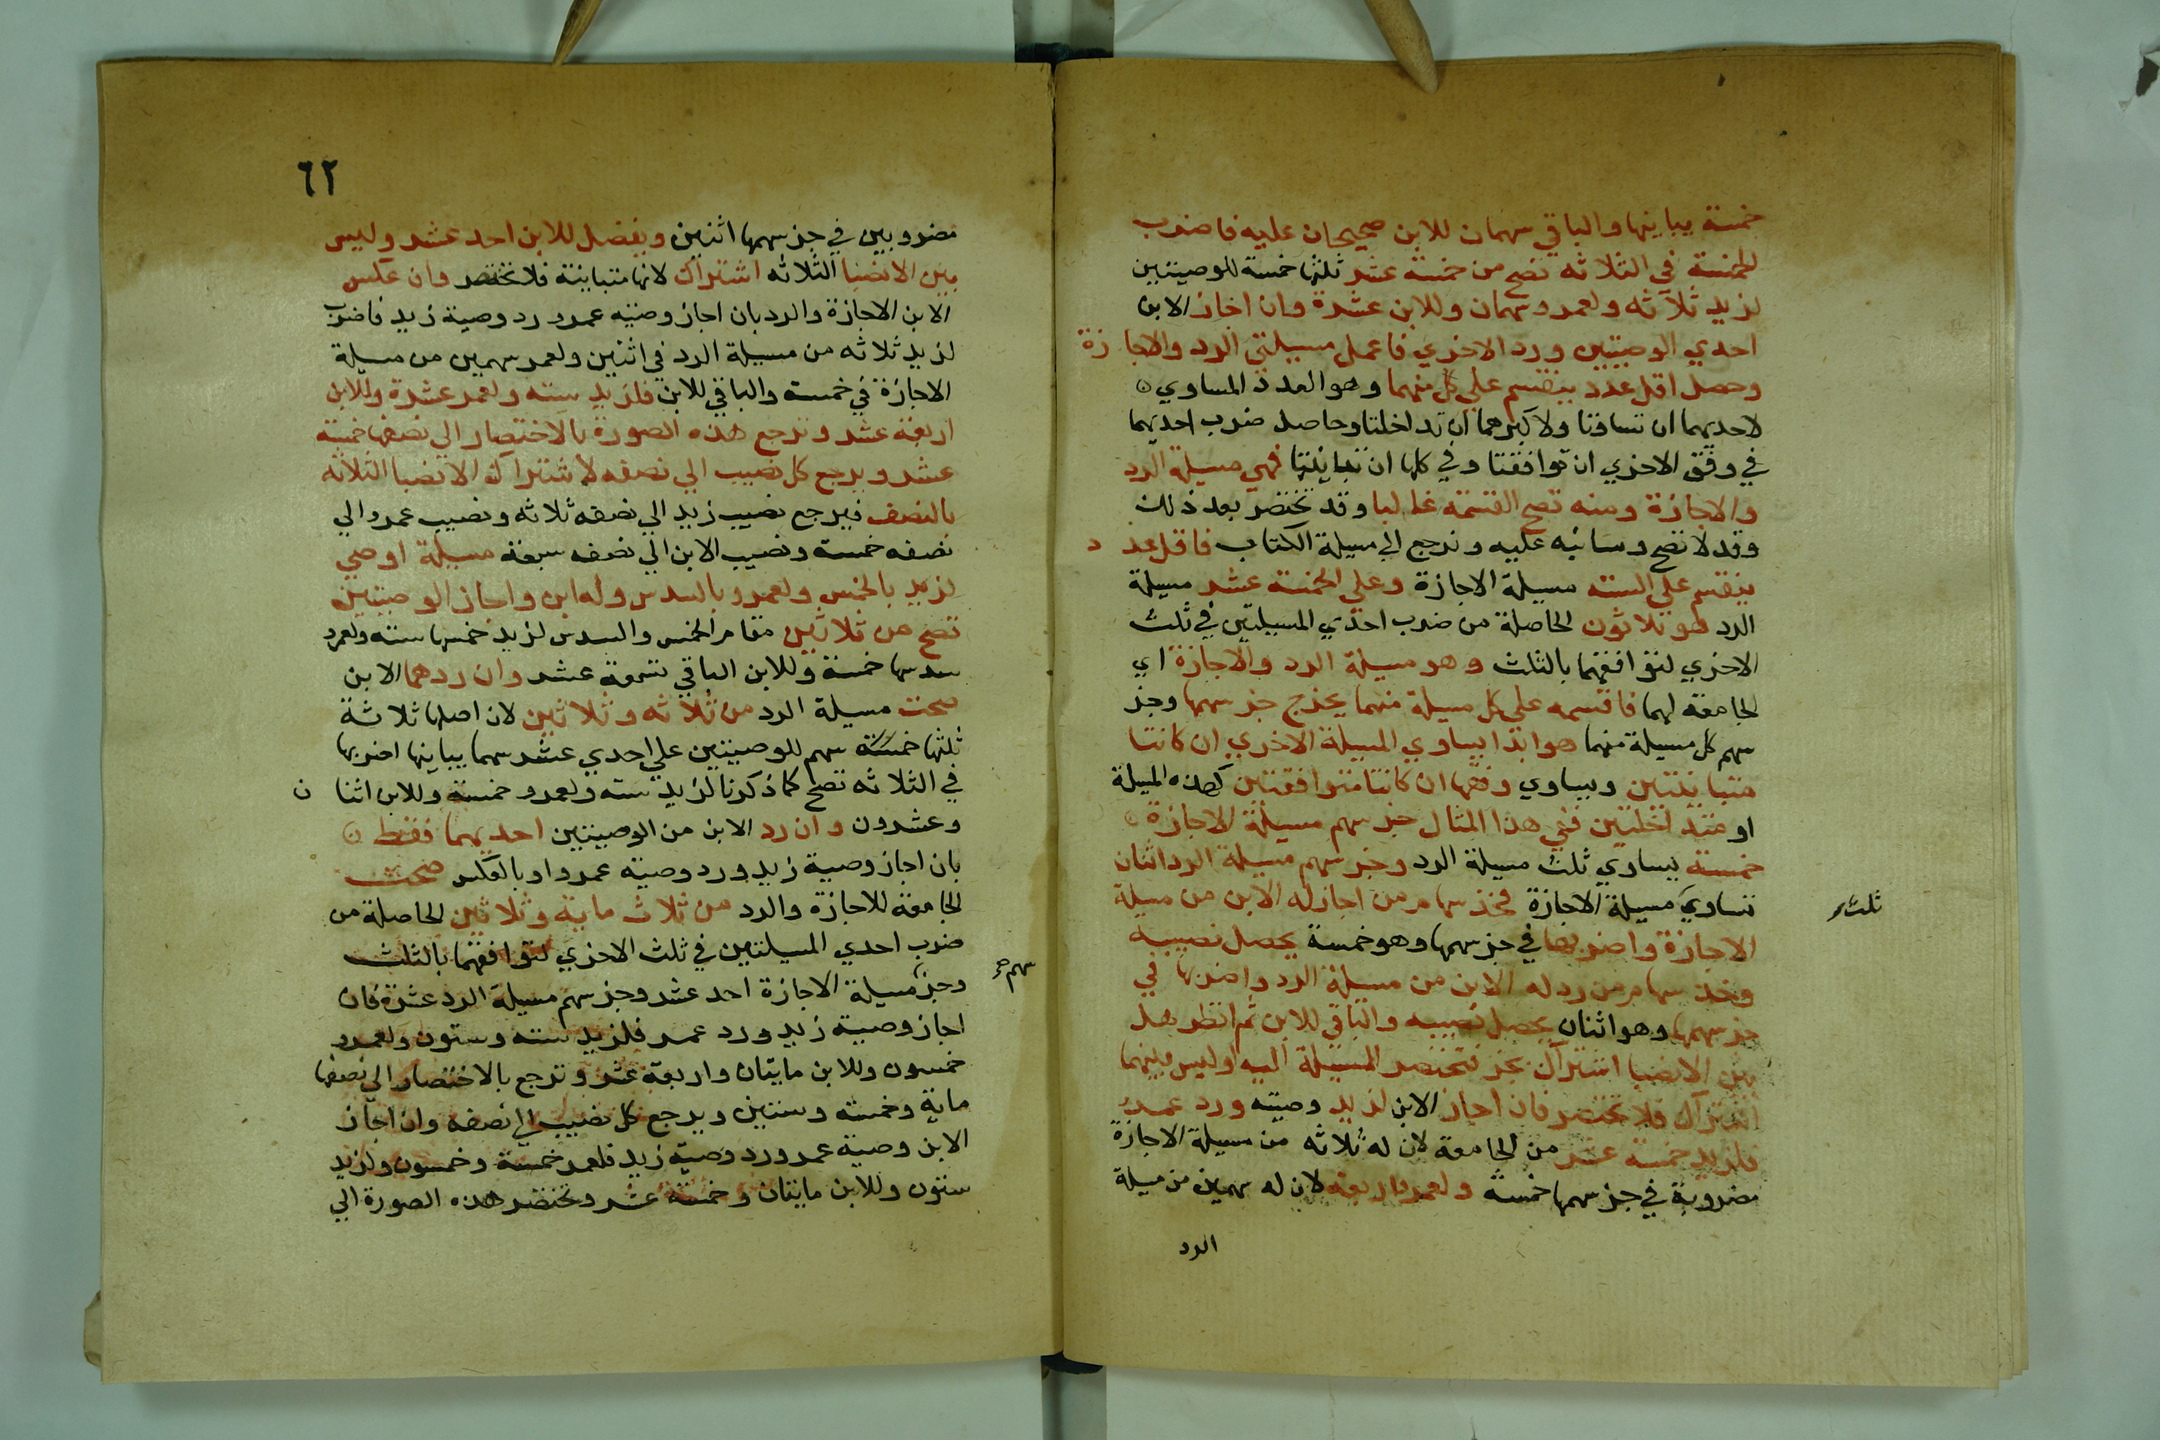 خمسة يباينها والباقي سهمان للابن صحيحان عليه فاضرب
الخمسة في الثلاثه تصح من خمسة عشر ثلثها خمسة للوصيتين
لزيد ثلاثه ولعمرو سهمان وللابن عشرة وان اجاز الابن
احدي الوصيتين ورد الاخري فاعمل مسيلتي الرد والاجازة
وحصل اقل عدد ينقسم علي كل منهما وهو العدد المساوي
لاحديهما ان تساوتا ولاكبرهما ان تداخلتا وحاصل ضرب احديهما
في وفق الاخري ان توافقتا وفي كلها ان تباينتا فهي مسيلة الرد
والاجازة ومنه تصح القسمة غالبا وقد تختصر بعد ذلك
وقد لا تصح وسانبه عليه ونرجع الي مسيلة الكتاب فاقل عدد
ينقسم علي الستة مسيلة الاجازة وعلي الخمسة عشر مسيلة
الرد هو ثلاثون الحاصلة من ضرب احدي المسيلتين في ثلث
الاخري لتوافقهما بالثلث وهو مسيلة الرد والاجازة اي
الجامعة لهما فاقسمه علي كل مسيلة منهما يخرج جز سهمها وجز
سهم كل مسيلة منهما هو ابدا يساوي المسيلة الاخري ان كانتا
متباينتين ويساوي وفقها ان كانتا متوافقتين كهذه المسيلة
او متداخلتين ففي هذا المثال جز سهم مسيلة الاجازة
خمسة يساوي ثلث مسيلة الرد وجز سهم مسيلة الرد اثنان
تساوي مسيلة الاجازة فخذ سهام من اجاز له الابن من مسيلة
ثلث
الاجازة واضربها في جز سهمها وهو خمسة يحصل نصيبه
وخذ سهام من رد له الابن من مسيلة الرد واضربها في
جز سهمها وهو اثنان يحصل نصيبه والباقي للابن ثم انظر هل
بين الانصبا اشتراك بجز فتختصر المسيلة اليه او ليس بينهما
اشتراك فلا تختصر فان اجاز الابن لزيد وصيته ورد عمرو
فلزيد خمسة عشر من الجامعة لان له ثلاثه من مسيلة الاجازة
مضروبة في جز سهمها خمسة ولعمرو اربعة لان له سهمين من مسيلة
الرد
٦٢
مضروبين في جز سهمها اثنين ويفضل للابن احد عشر وليس
بين الانصبا الثلاثه اشتراك لانها متباينة فلا تختصر وان عكس
الابن الاجازة والرد بان اجاز وصيته عمرو ورد وصية زيد فاضرب
لزيد ثلاثه من مسيلة الرد في اثنين ولعمر سهمين من مسيلة
الاجازة في خمسة والباقي للابن فلزيد ستة ولعمر عشرة وللابن
اربعة عشر وترجع هذه الصورة بالاختصار الي نصفها خمسة
عشر ويرجع كل نصيب الي نصفه لاشتراك الانصبا الثلاثه
بالنصف فيرجع نصيب زيد الي نصفه ثلاثه ونصيب عمرو الي
نصفه خمسة ونصيب الابن الي نصفه سبعة مسيلة اوصي
لزيد بالخمس ولعمرو بالسدس وله ابن واجاز الوصيتين
تصح من ثلاثين مقام الخمس والسدس لزيد خمسها سته ولعمرو
سدسها خمسة وللابن الباقي تسعة عشر وان ردهما الابن
صحت مسيلة الرد من ثلاثه وثلاثين لان اصلها ثلاثة
ثلثها سهم للوصيتين علي احدي عشر سهما يباينها اضربها
في الثلاثه تصح كما ذكرنا لزيد سته ولعمرو خمسة وللابن اثنان
وعشرون وان رد الابن من الوصيتين احديهما فقط
بان اجاز وصية زيد ورد وصيته عمرو او بالعكس صحت
الجامعة للاجازة والرد من ثلاث ماية وثلاثين الحاصلة من
ضرب احدي المسيلتين في ثلث الاخري لتوافقهما بالثلث
سهم صح
وجز مسيلة الاجازة احد عشر وجز سهم مسيلة الرد عشرة فان
اجاز وصية زيد ورد عمر فلزيد سته وستون ولعمرو
خمسون وللابن مايتان واربعة عشر وترجع بالاختصار الي نصفها
ماية وخمسه وستين ويرجع كل نصيب الي نصفه وان اجاز
الابن وصية عمر ورد وصية زيد فلعمر خمسة وخمسون ولزيد
ستون وللابن مايتان وخمسة عشر وتختصر هذه الصورة الي